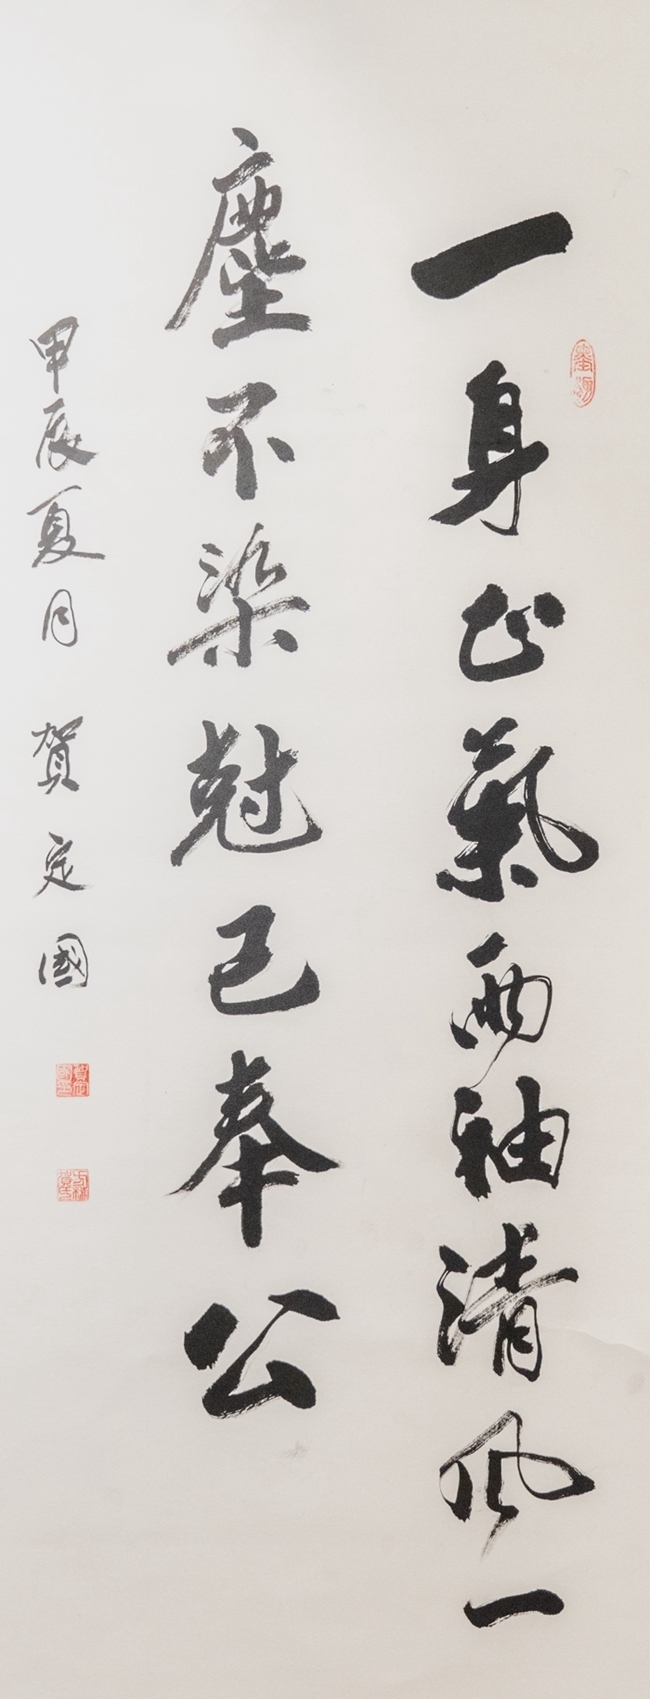 一身正氣兩袖清風一
塵不染尅己奉公
甲辰夏月 賀定國